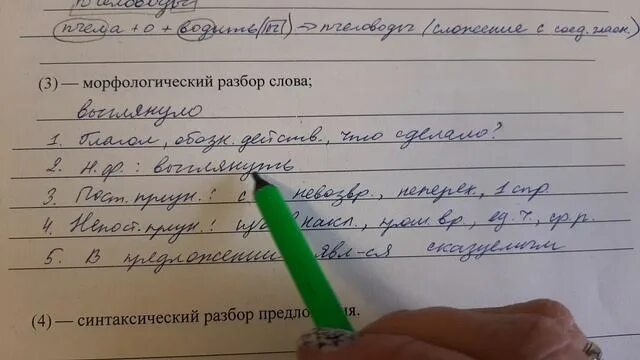 пчеловоды
пчела + о + водить (П) ⇒ пчеловоды (сложение с соед. гласн.)
(3) — морфологический разбор слова;
выглянуло
1. Глагол, обозн. действ., что сделало?
2. Н.ф.: выглянуть
3. Пост. призн.: с невозвр., неперех., 1 спр.
4. Непост. призн.: накл., прош. вр., ед. ч., ср. р.
5. В предложении явл-ся сказуемым
(4) — синтаксический разбор предложения.